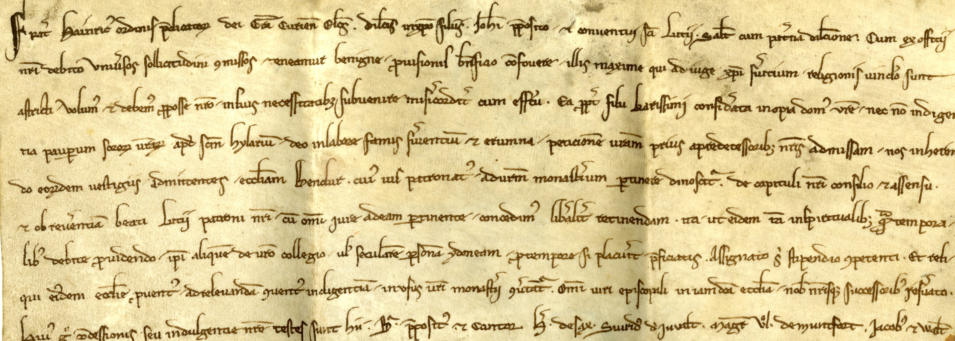 Frater Heinricus ordinis predicatorum dei gratia Curiensis Electus. dilectis in christo filiis. Johanni preposito et conventui sancti Lucii. Salutem cum paterna dilectione. Cum ex officii
nostri debito universos sollicitudini commissos teneamur benigne provisionis beneficio confovere illis maxime qui ad iuge christi servicium religionis vinculo sunt
astricti volumus et debemus pro posse nostro in huius necessitatibus subvenire misericorditer cum effectu. Ea propter filii karissimi considerata inopia domus vestre nec non indigen
tia pauperum sororum vestrarum apud sanctum Hylarium deo in labore famis servientium et erumna peticionem vestram prius a predecessoribus nostris admissam nos inheren
do eorundem vestigiis admittentes ecclesiam Bendur. cuius ius patronatus ad vestrum monasterium pertinere dinoscitur. de capituli nostri consilio et assensu.
et ob reverentiam beati Lucii patroni nostri cum omni iure ad eam pertinente concedimus liberaliter retinendam. ita ut eidem tam in spiritualibus quam tempora
libus debite providendo ipsi aliquem de vestro collegio vel secularem personam ydoneam pro tempore si placuerit preficiatis. Assignato sibi stipendio competenti. Et reli
qui eiusdem ecclesie proventus ad relevandam indigentiam in usus vestri monasterii convertatur. Omni iure episcopali in iam dicta ecclesia nobis nostrisque successoribus reservato.
Huius concessionis seu indulgentie nostre testes sunt hii. prepositus et Cantor. de Sax. de Juvalt. Magister de Muntfort. Jacobus et